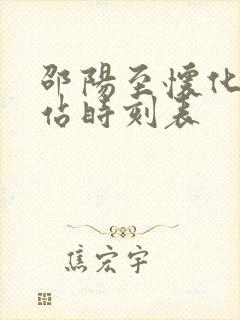 邵陽至懷化
佔時刻表
焦宏宇